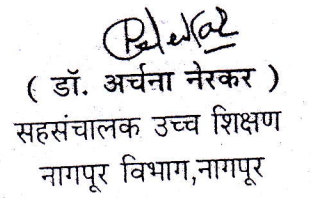 ( डॉ. अर्चना नेरकर )
सहसंचालक उच्च शिक्षण
नागपूर विभाग,नागपूर